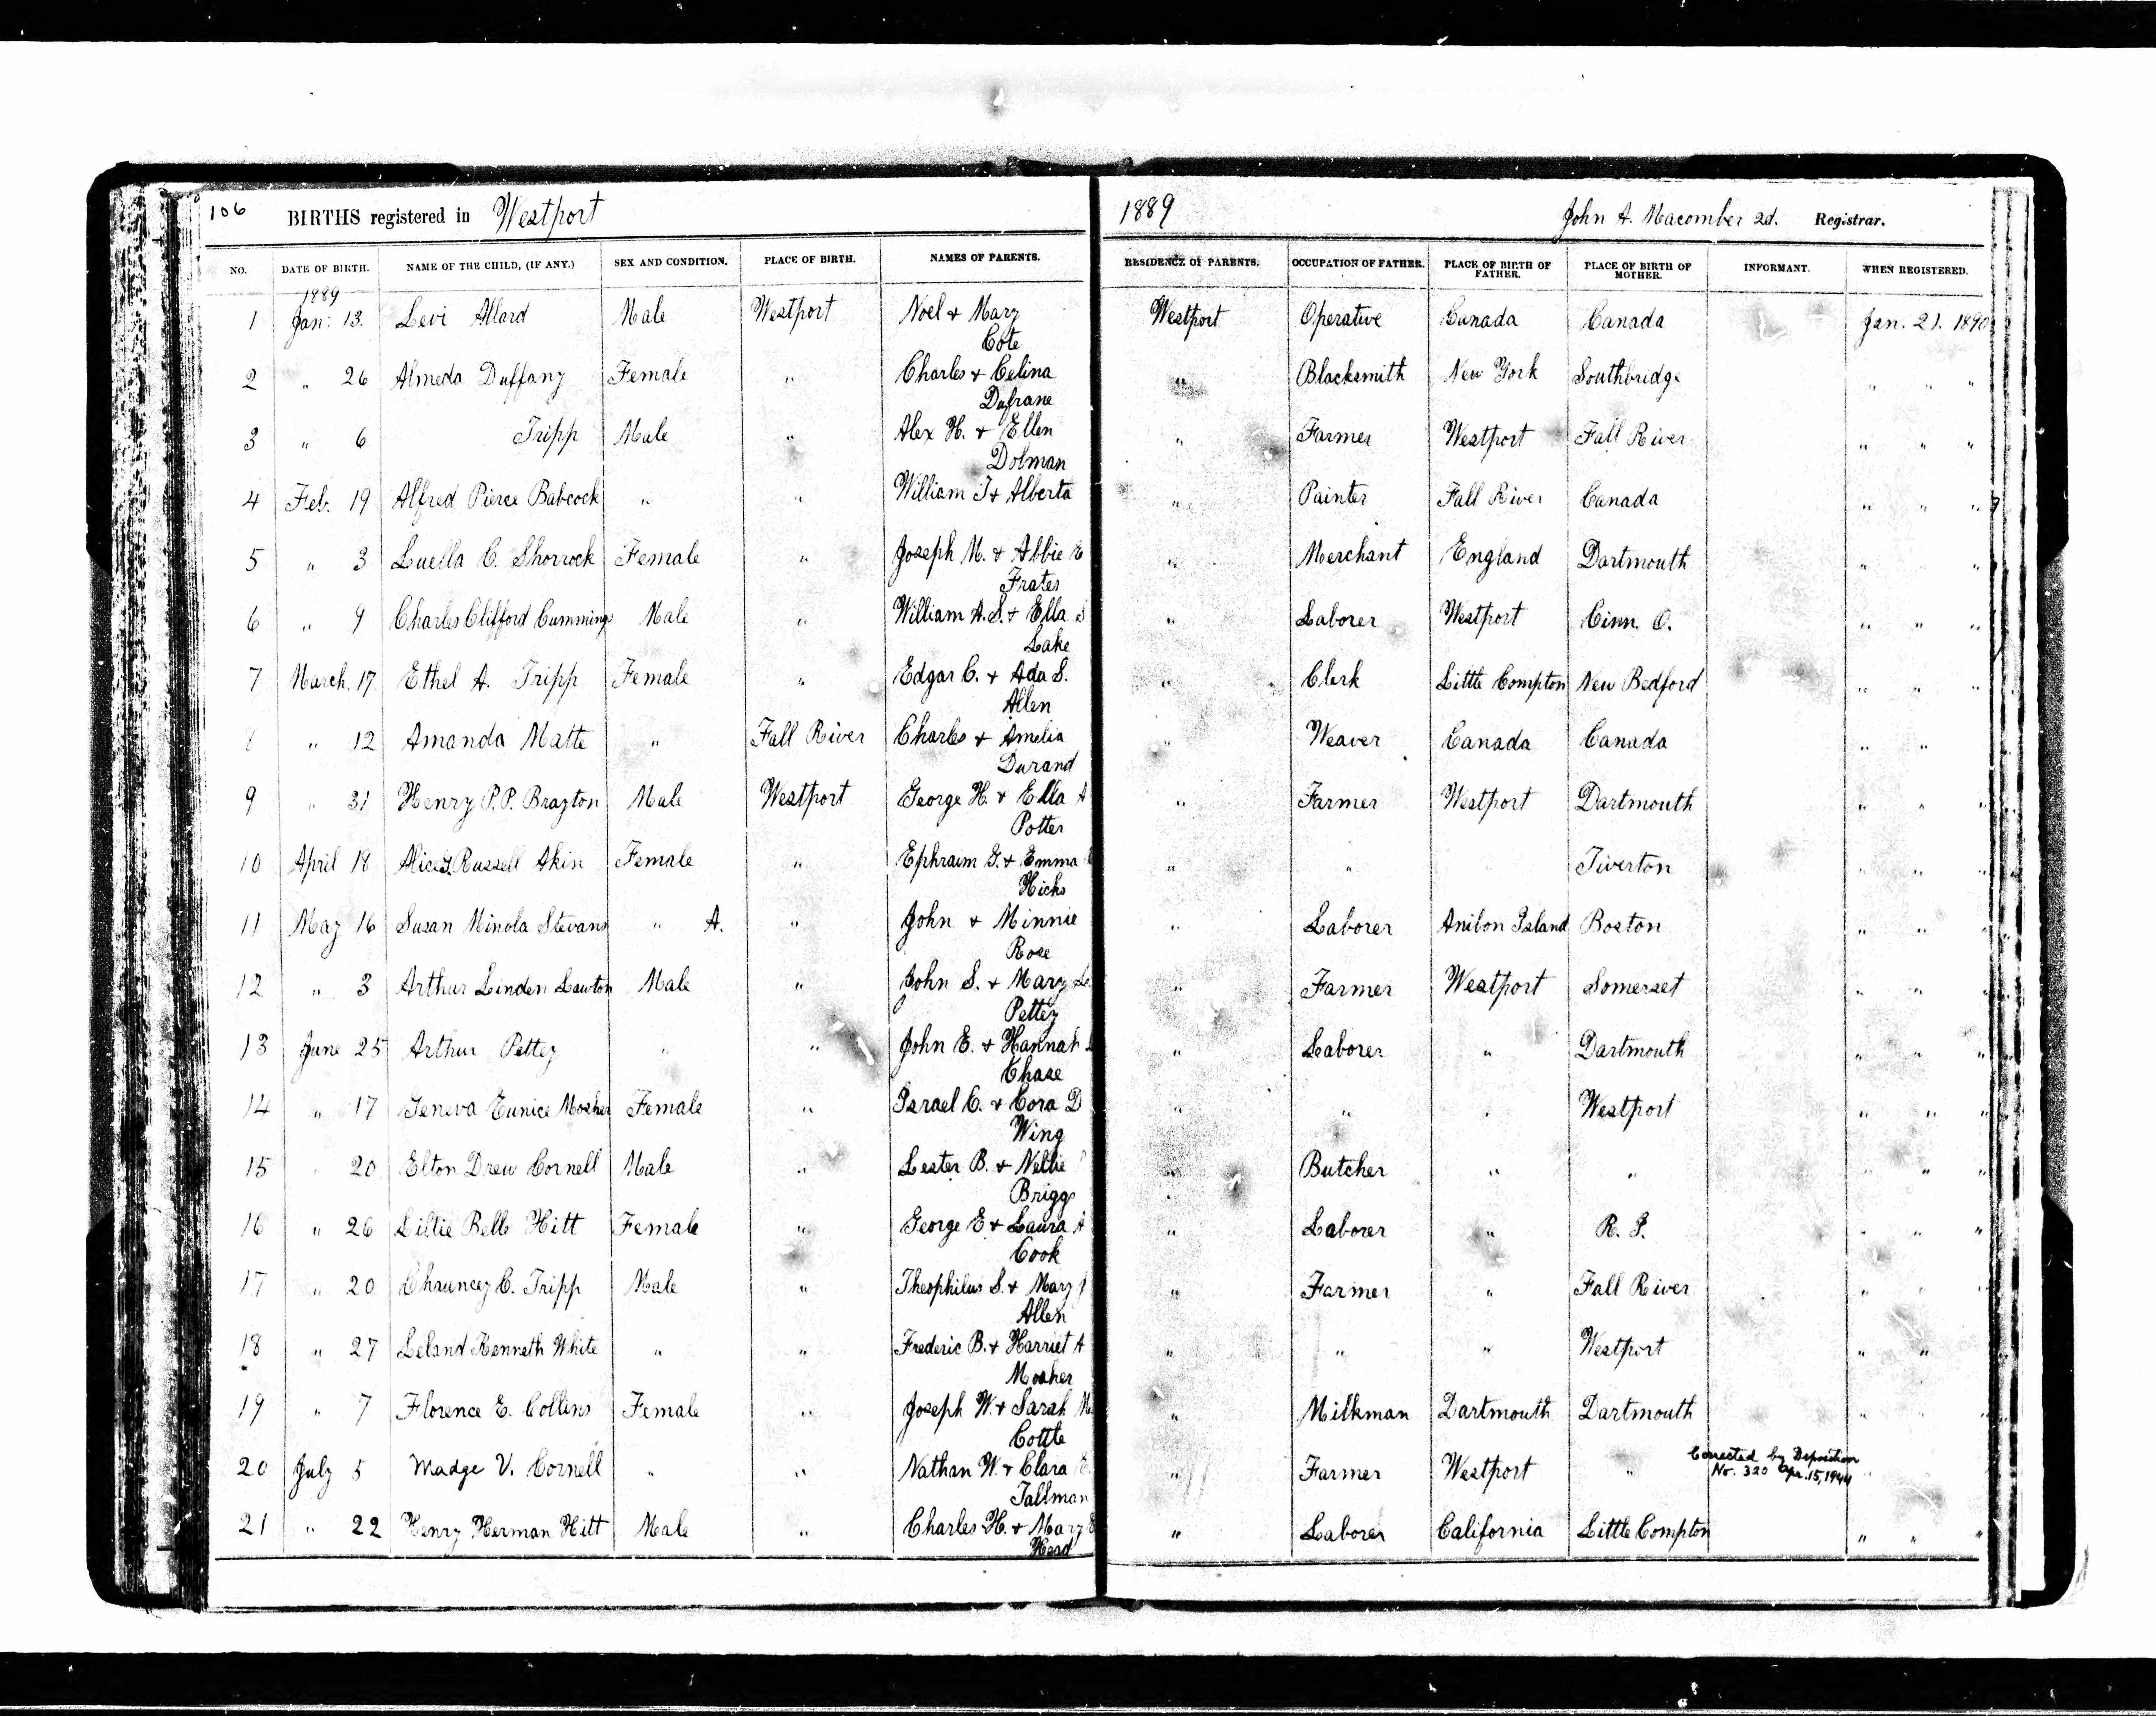 106 BIRTHS registered in Westport 1889 John A. Macomber 2d. Registrar.
NO. DATE OF BIRTH. NAME OF THE CHILD, (IF ANY.) SEX AND CONDITION. PLACE OF BIRTH. NAMES OF PARENTS. RESIDENCE OF PARENTS. OCCUPATION OF FATHER. PLACE OF BIRTH OF FATHER. PLACE OF BIRTH OF MOTHER. INFORMANT. WHEN REGISTERED.
1889
1 Jan. 13. Levi Allard Male Westport Noel & Mary Westport Operative Canada Canada Jan. 21. 1890
Cote
2 " 26 Almeda Duffany Female " Charles & Celina " Blacksmith New York Southbridge " " "
Dufrane
3 " 6 Tripp Male " Alex H. & Ellen " Farmer Westport Fall River " " "
Dolman
4 Feb. 19 Alfred Pierce Babcock " " William J & Alberta " Painter Fall River Canada " " "
5 " 3 Luella C. Shorrock Female " Joseph M. & Abbie E " Merchant England Dartmouth " "
Frates
6 " 9 Charles Clifford Cummings Male " William A. S. & Ella S " Laborer Westport Cinn. O. " " "
Lake
7 March. 17 Ethel A. Tripp Female " Edgar C. & Ada S. " Clerk Little Compton New Bedford " " "
Allen
8 " 12 Amanda Matte " Fall River Charles & Amelia " Weaver Canada Canada " "
Durand
9 " 31 Henry P. P. Brayton Male Westport George H. & Ella A " Farmer Westport Dartmouth " " "
Potter
10 April 18 Alice J. Russell Akin Female " Ephraim G. & Emma " " Tiverton " " "
Hicks
11 May 16 Susan Minola Stevans " A. " John & Minnie " Laborer Boston " " "
Rose
12 " 3 Arthur Linden Lawton Male " John S. & Mary Le " Farmer Westport Somerset " " "
Pettey
13 June 25 Arthur Pettey " " John E. & Hannah " Laborer " Dartmouth " " "
Chase
14 " 17 Geneva Eunice Mosher Female " Israel C. & Cora D " " " Westport " " "
Wing
15 " 20 Elton Drew Cornell Male " Lester B. & Nellie " Butcher " " " " "
Briggs
16 " 26 Lillie Belle Hitt Female " George E & Laura A " Laborer " R. I. " " "
Cook
17 " 20 Chauncey C. Tripp Male " Theophilus S. & Mary " Farmer " Fall River " " "
Allen
18 " 27 Leland Kenneth White " " Frederic B. & Harriet A " " " Westport " "
Mosher
19 " 7 Florence E. Collins Female " Joseph W. & Sarah M " Milkman Dartmouth Dartmouth " " "
Cottle
20 July 5 Madge V. Cornell " " Nathan W. & Clara E " Farmer Westport " Corrected by Deposition No. 320 Apr. 15, 1944 "
Tallman
21 " 22 Henry Herman Hitt Male " Charles H. & Mary E " Laborer California Little Compton " " "
Head